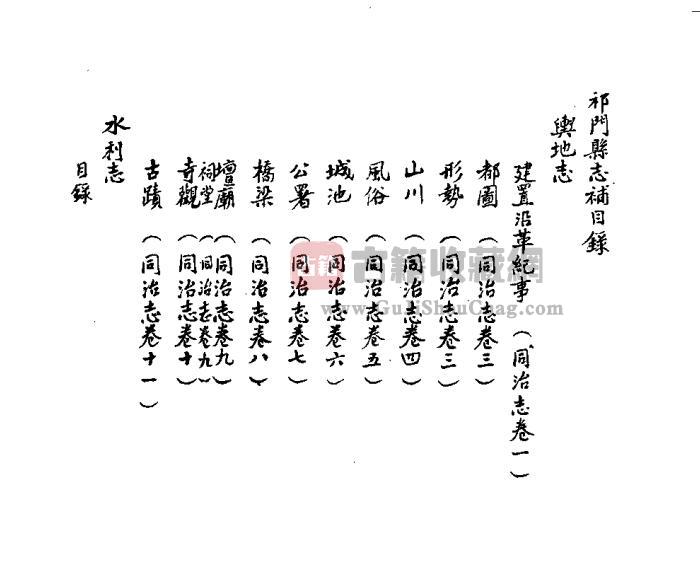 祁門縣志補目錄
輿地志
建置沿革紀事（同治志卷一）
都圖（同治志卷三）
形勢（同治志卷三）
山川（同治志卷四）
風俗（同治志卷五）
城池（同治志卷六）
公署（同治志卷七）
橋梁（同治志卷八）
壇廟（同治志卷九）
祠堂（同治志卷九）
寺觀（同治志卷十）
古蹟（同治志卷十一）
水利志
目錄
古籍 古籍收藏網
www.GuJiShouCang.com